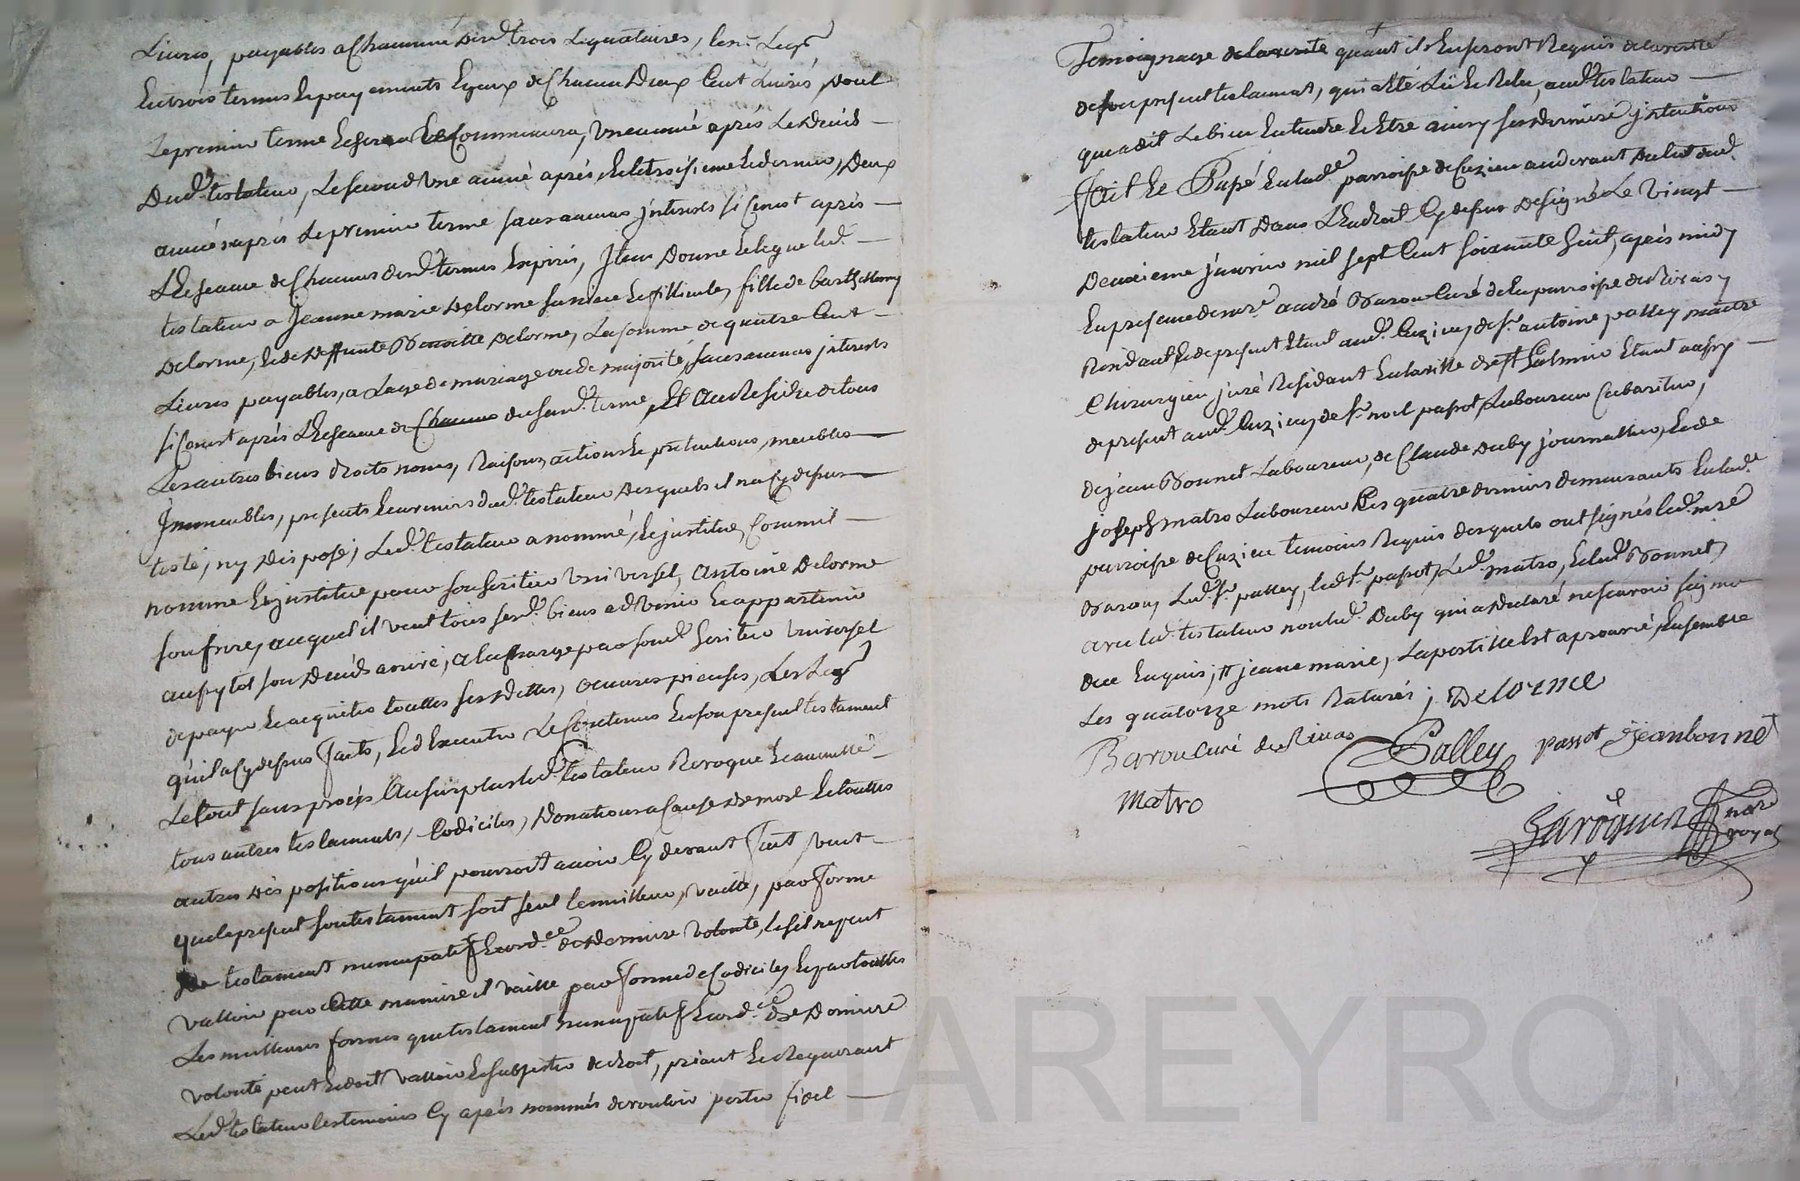 Livres, payables a Chacunne desd. trois Légataires, les. Leg.
En trois termes Et payements Egaux de Chacun Deux Cent Livres, dont
Le premier terme Echera Et Commencera, Une année après Le Décès
Dud. testateur, Le second Une année après, Et le troisieme Et dernier, Deux
années après Le premier terme sans aucuns jnterets si Ce n'est après
L'Echeance de Chacuns desd. termes Expirés, Jtem Donne Et Legue led.
testateur a Jeanne marie Delorme sa niece Et fillieule, fille de barthellemy
Delorme, Et de Deffunte Benoitte Delorme, La somme de quattre Cent
Livres payables, a L'age de mariage ou de majorité, sans aucuns jnterets
si Ce n'est après L'Echeance de Chacuns desd. terme, Et Au Residu de tous
Les autres biens droits noms, Raisons, actions Et prétentions, meubles
Jmmeubles, presents Et avenirs dud. testateur Desquels il n'a Cy dessus
testé, ny Disposé, Led. testateur a nommé, Et justitué, Comme il
nomme Et justitue pour son heritier Universel, Antoine Delorme
son frere, auquel il veut tous sesd. biens advenir Et appartenir
aussytot son Décès arrivé, a la Charge par sond. heritier Universel
de payer Et acquitter touttes ses Dettes, œuvres pieuses, Les Leg.
qu'il a Cy dessus faits, Et d'Executer Le Contenu En son present testament
Le tout sans procès Au surplus led. testateur Revoque Et annulle
tous autres testaments, Codiciles, Donations a Cause de mort Et touttes
autres Dispositions qu'il pourroit avoir Cy devant fait, veut
que le present son testament soit seul Le meilleur, vaille, par forme
de testament nuncupatif Et ord.ce de derniere volonté, Et s'il ne peut
valloir par Cette maniere il vaille par forme de Codicile, Et par touttes
Les meilleures formes que testament nuncupatif Et ord.ce de Derniere
volonté peut Et doit valloir Et subsister de droit, priant Et Requerant
Led. testateur Les temoins Cy après nommés de vouloir porter fidel
Temoignage de la verité quant ils En seront Requis de la verité
de son present testament, qui a Eté Lû Et Relu, aud. testateur
qui a dit Le bien Entendre Et Etre ainsy ses dernieres jntentions
fait Et Passé En lad. parroisse de Cuzieu au devant du lit dud.
testateur Etant Dans L'Endroit Cy dessus Designé Le Vingt
Deuxieme janvier mil sept Cent soixante huit, après midy
En presence de mre. andré Barou Curé de la parroisse de Rivas y
Residant, Et de present Etant aud. Cuzieu, de sr. antoine palley maitre
Chirurgien juré Residant En la ville de st Galmier Etant aussy
de present aud. Cuzieu, de sr. noel passot Laboureur Cabaretier,
de jean Bonnet Laboureur, de Claude Duby journallier, Et de
joseph matro Laboureur Les quattre derniers demeurants En lad.
parroisse de Cuzieu temoins Requis desquels ont signés led. mre
Barou, Led. sr. palley, led. sr. passot, Led. matro, Et led. Bonnet,
avec led. testateur non led. Duby qui a declaré ne scavoir signer
de ce Enquis, jeane marie, L'apostille Est aprouvé, Ensemble
Les quatorze mots Raturés, Delorme
Barou Curé de Rivas Palley passot jean bonnet
matro
not.re
royal
CHAREYRON